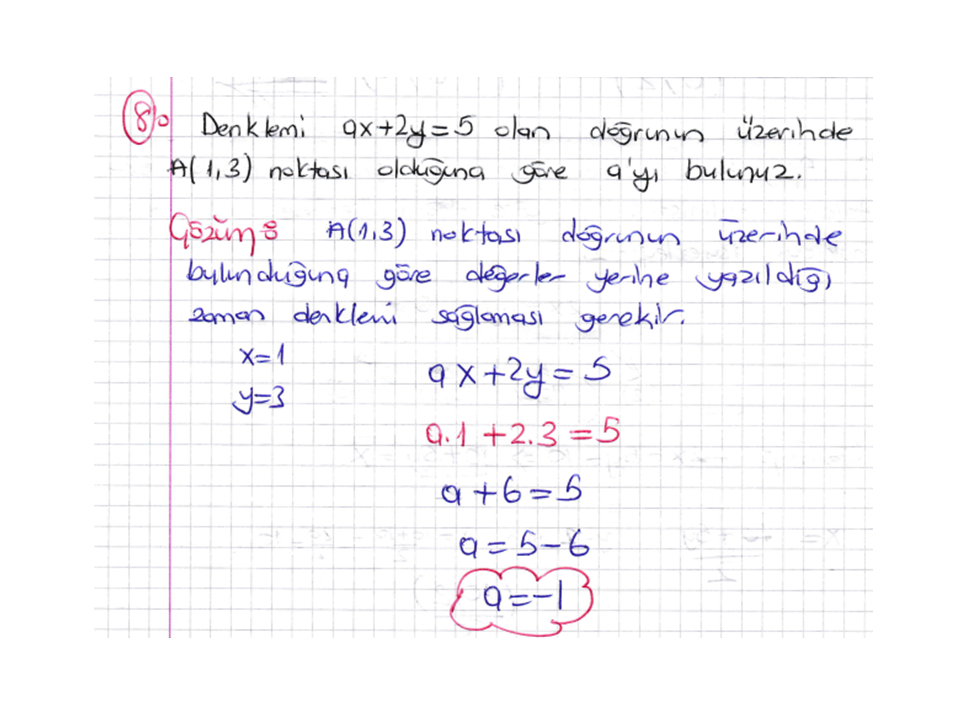 8) Denklemi ax+2y=5 olan doğrunun üzerinde
A(1,3) noktası olduğuna göre a'yı bulunuz.
Çözüm: A(1,3) noktası doğrunun üzerinde
bulunduğuna göre değerler yerine yazıldığı
zaman denklemi sağlaması gerekir.
x=1
y=3
ax+2y=5
a.1+2.3=5
a+6=5
a=5-6
a=-1